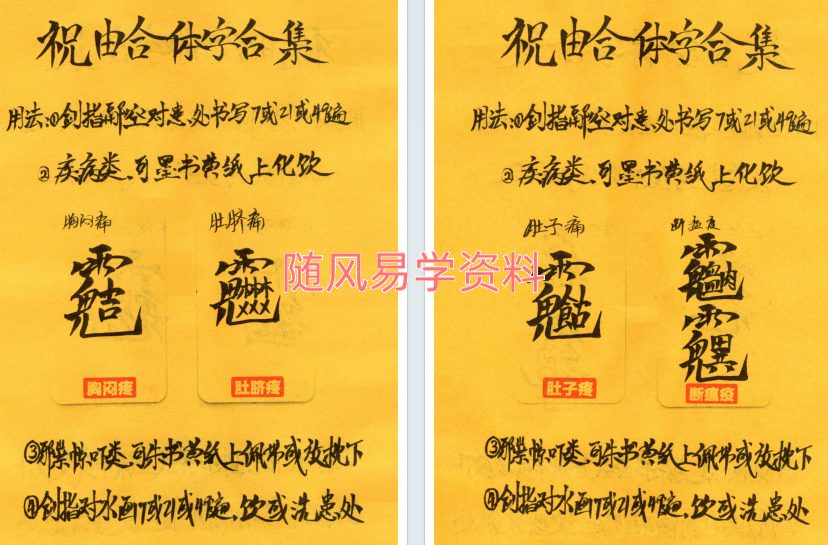 祝由合体字合集
用法:①剑指凌空对患处书写7或21或49遍
②疾病类、可墨书黄纸上化饮
胸闷痛
肚脐痛
胸闷疼
肚脐疼
③邪祟惊吓类、可朱书黄纸上佩带或放枕下
④剑指对水画7或21或49遍、饮或洗患处
祝由合体字合集
用法:①剑指凌空对患处书写7或21或49遍
②疾病类、可墨书黄纸上化饮
肚子痛
断瘟疫
肚子疼
断瘟疫
③邪祟惊吓类、可朱书黄纸上佩带或放枕下
④剑指对水画7或21或49遍、饮或洗患处
随风易学资料